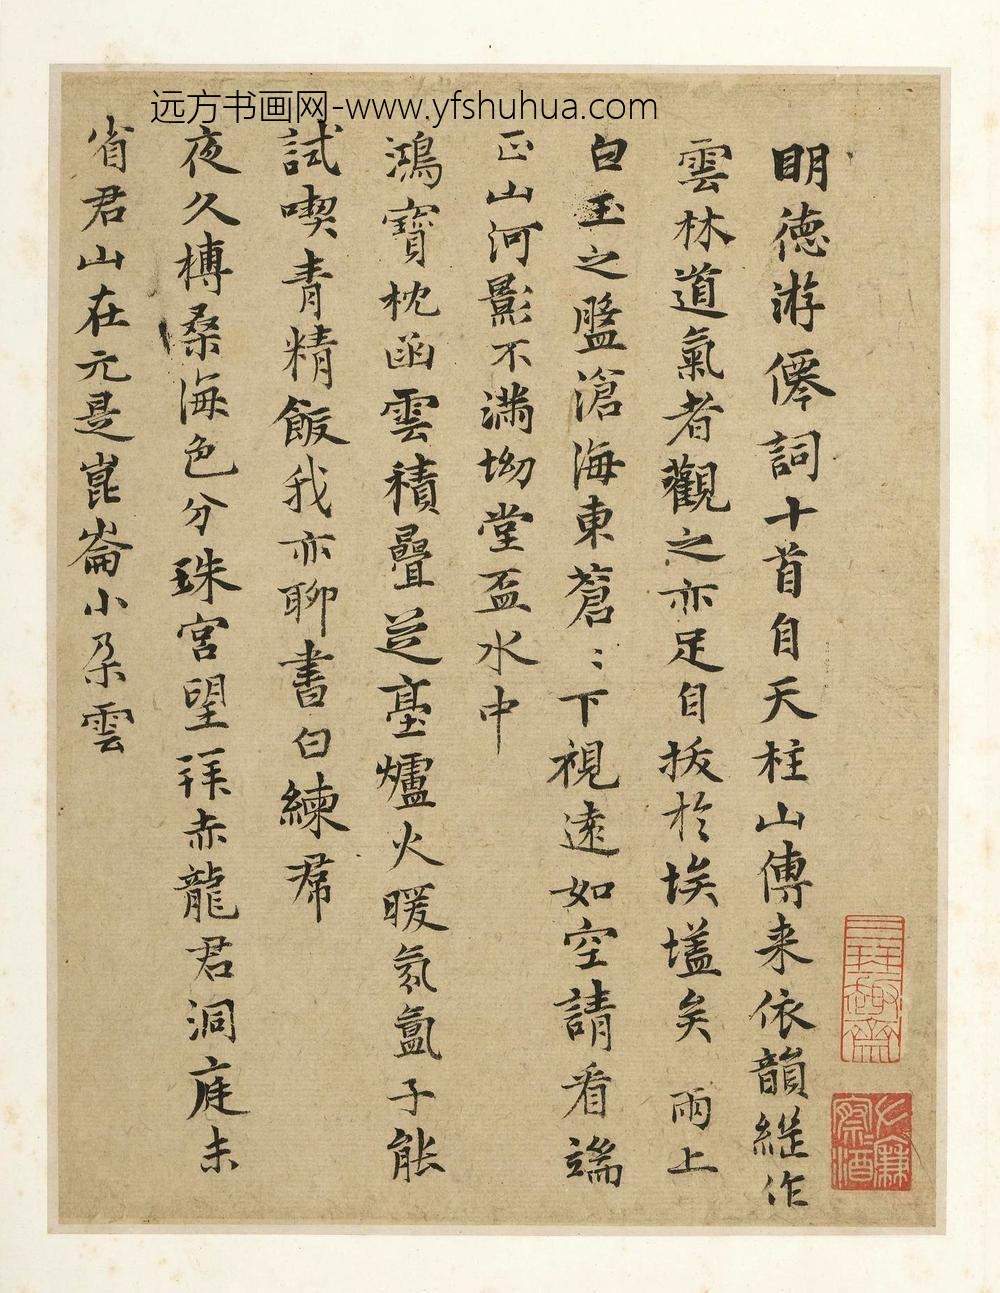 远方书画网-www.yfshuhua.com
明德游僊詞十首自天柱山傳来依韻継作
雲林道氣者觀之亦足自拔於埃壒矣 兩上
白玉之盤滄海東蒼〻下視遠如空請看端
正山河影不滿坳堂盃水中
鴻寶枕函雲積疊芝臺爐火暖氛氳子能
試喫青精飯我亦聊書白練帬
夜久榑桑海色分珠宮望拜赤龍君洞庭未
省君山在元是崑崙小朵雲
三琹趣齋